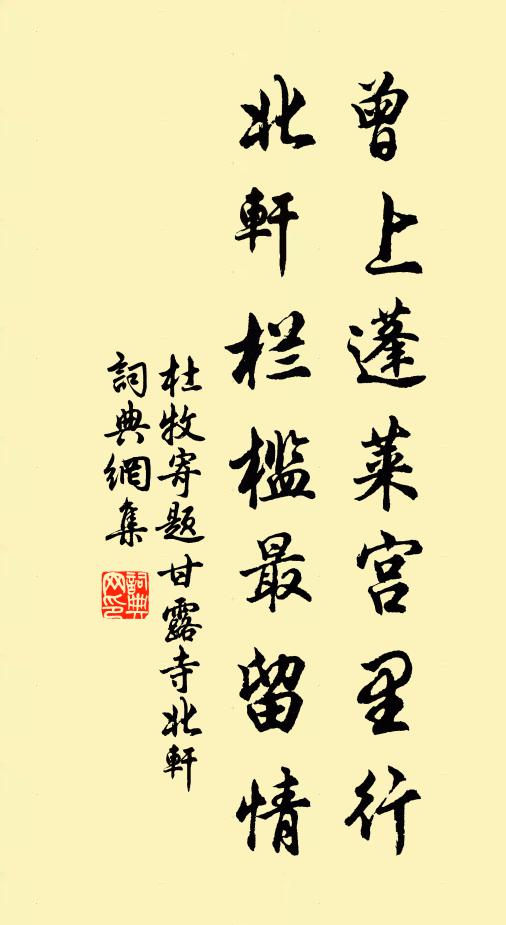 曾上蓬莱宫里行
北軒栏槛最留情
杜牧寄题甘露寺北軒
詞典網集
詞典
网印